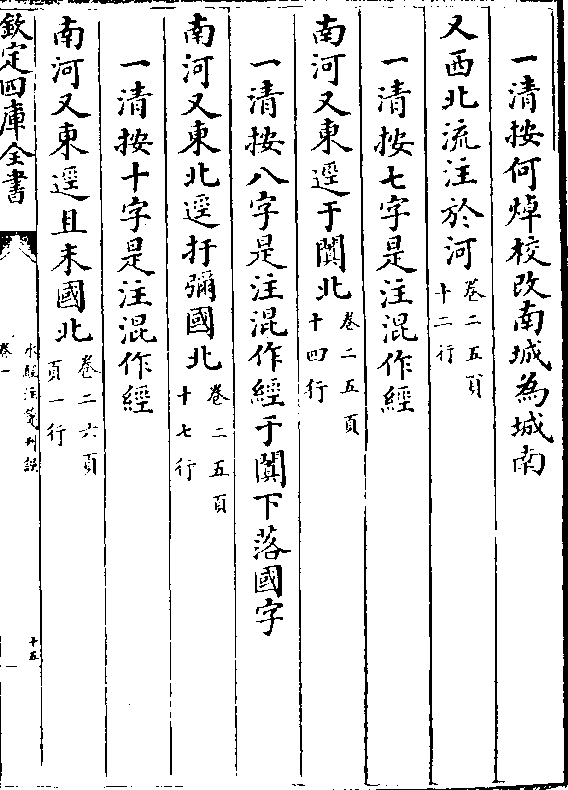 一清按何焯校改南城為城南
又西北流注於河卷二五頁十二行
一清按七字是注混作經
南河又東逕于闐北卷二五頁十四行
一清按八字是注混作經于闐下落國字
南河又東北逕扜彌國北卷二五頁十七行
一清按十字是注混作經
南河又東逕且末國北卷二六頁一行
欽定四庫全書
水經注箋刊誤
卷一
十五